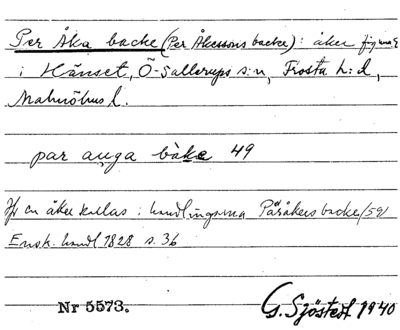 Per Åka backe (Per Åkessons backe): åker fig. nr
i Hänset, Ö-Sallerups s:n, Frosta h:d,
Malmöhus l.
par auga bàke 49
Jfr en åker kallas i handlingarna Påråkers backe/59/
Ensk. handl 1828 s. 36
Nr 5573.
G. Sjöstedt 1940